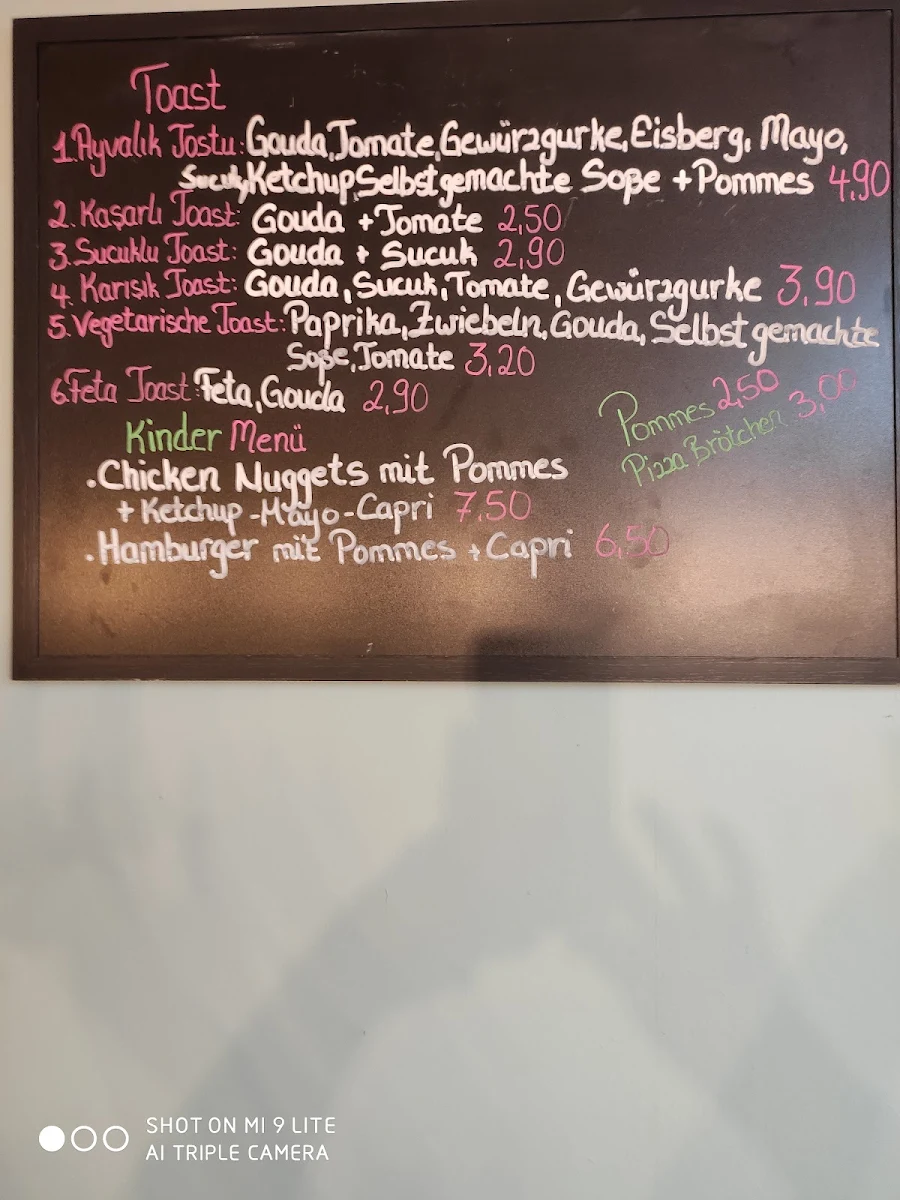 Toast
1. Ayvalık Tostu: Gouda, Tomate, Gewürzgurke, Eisberg, Mayo,
Sucuk, Ketchup, Selbstgemachte Soße + Pommes 4,90
2. Kaşarlı Toast: Gouda + Tomate 2,50
3. Sucuklu Toast: Gouda + Sucuk 2,90
4. Karışık Toast: Gouda, Sucuk, Tomate, Gewürzgurke 3,90
5. Vegetarische Toast: Paprika, Zwiebeln, Gouda, Selbstgemachte
Soße, Tomate 3,20
6. Feta Toast: Feta, Gouda 2,90
Pommes 2,50
Pizza Brötchen 3,00
Kinder Menü
. Chicken Nuggets mit Pommes
+ Ketchup - Mayo - Capri 7,50
. Hamburger mit Pommes + Capri 6,50
SHOT ON MI 9 LITE
AI TRIPLE CAMERA